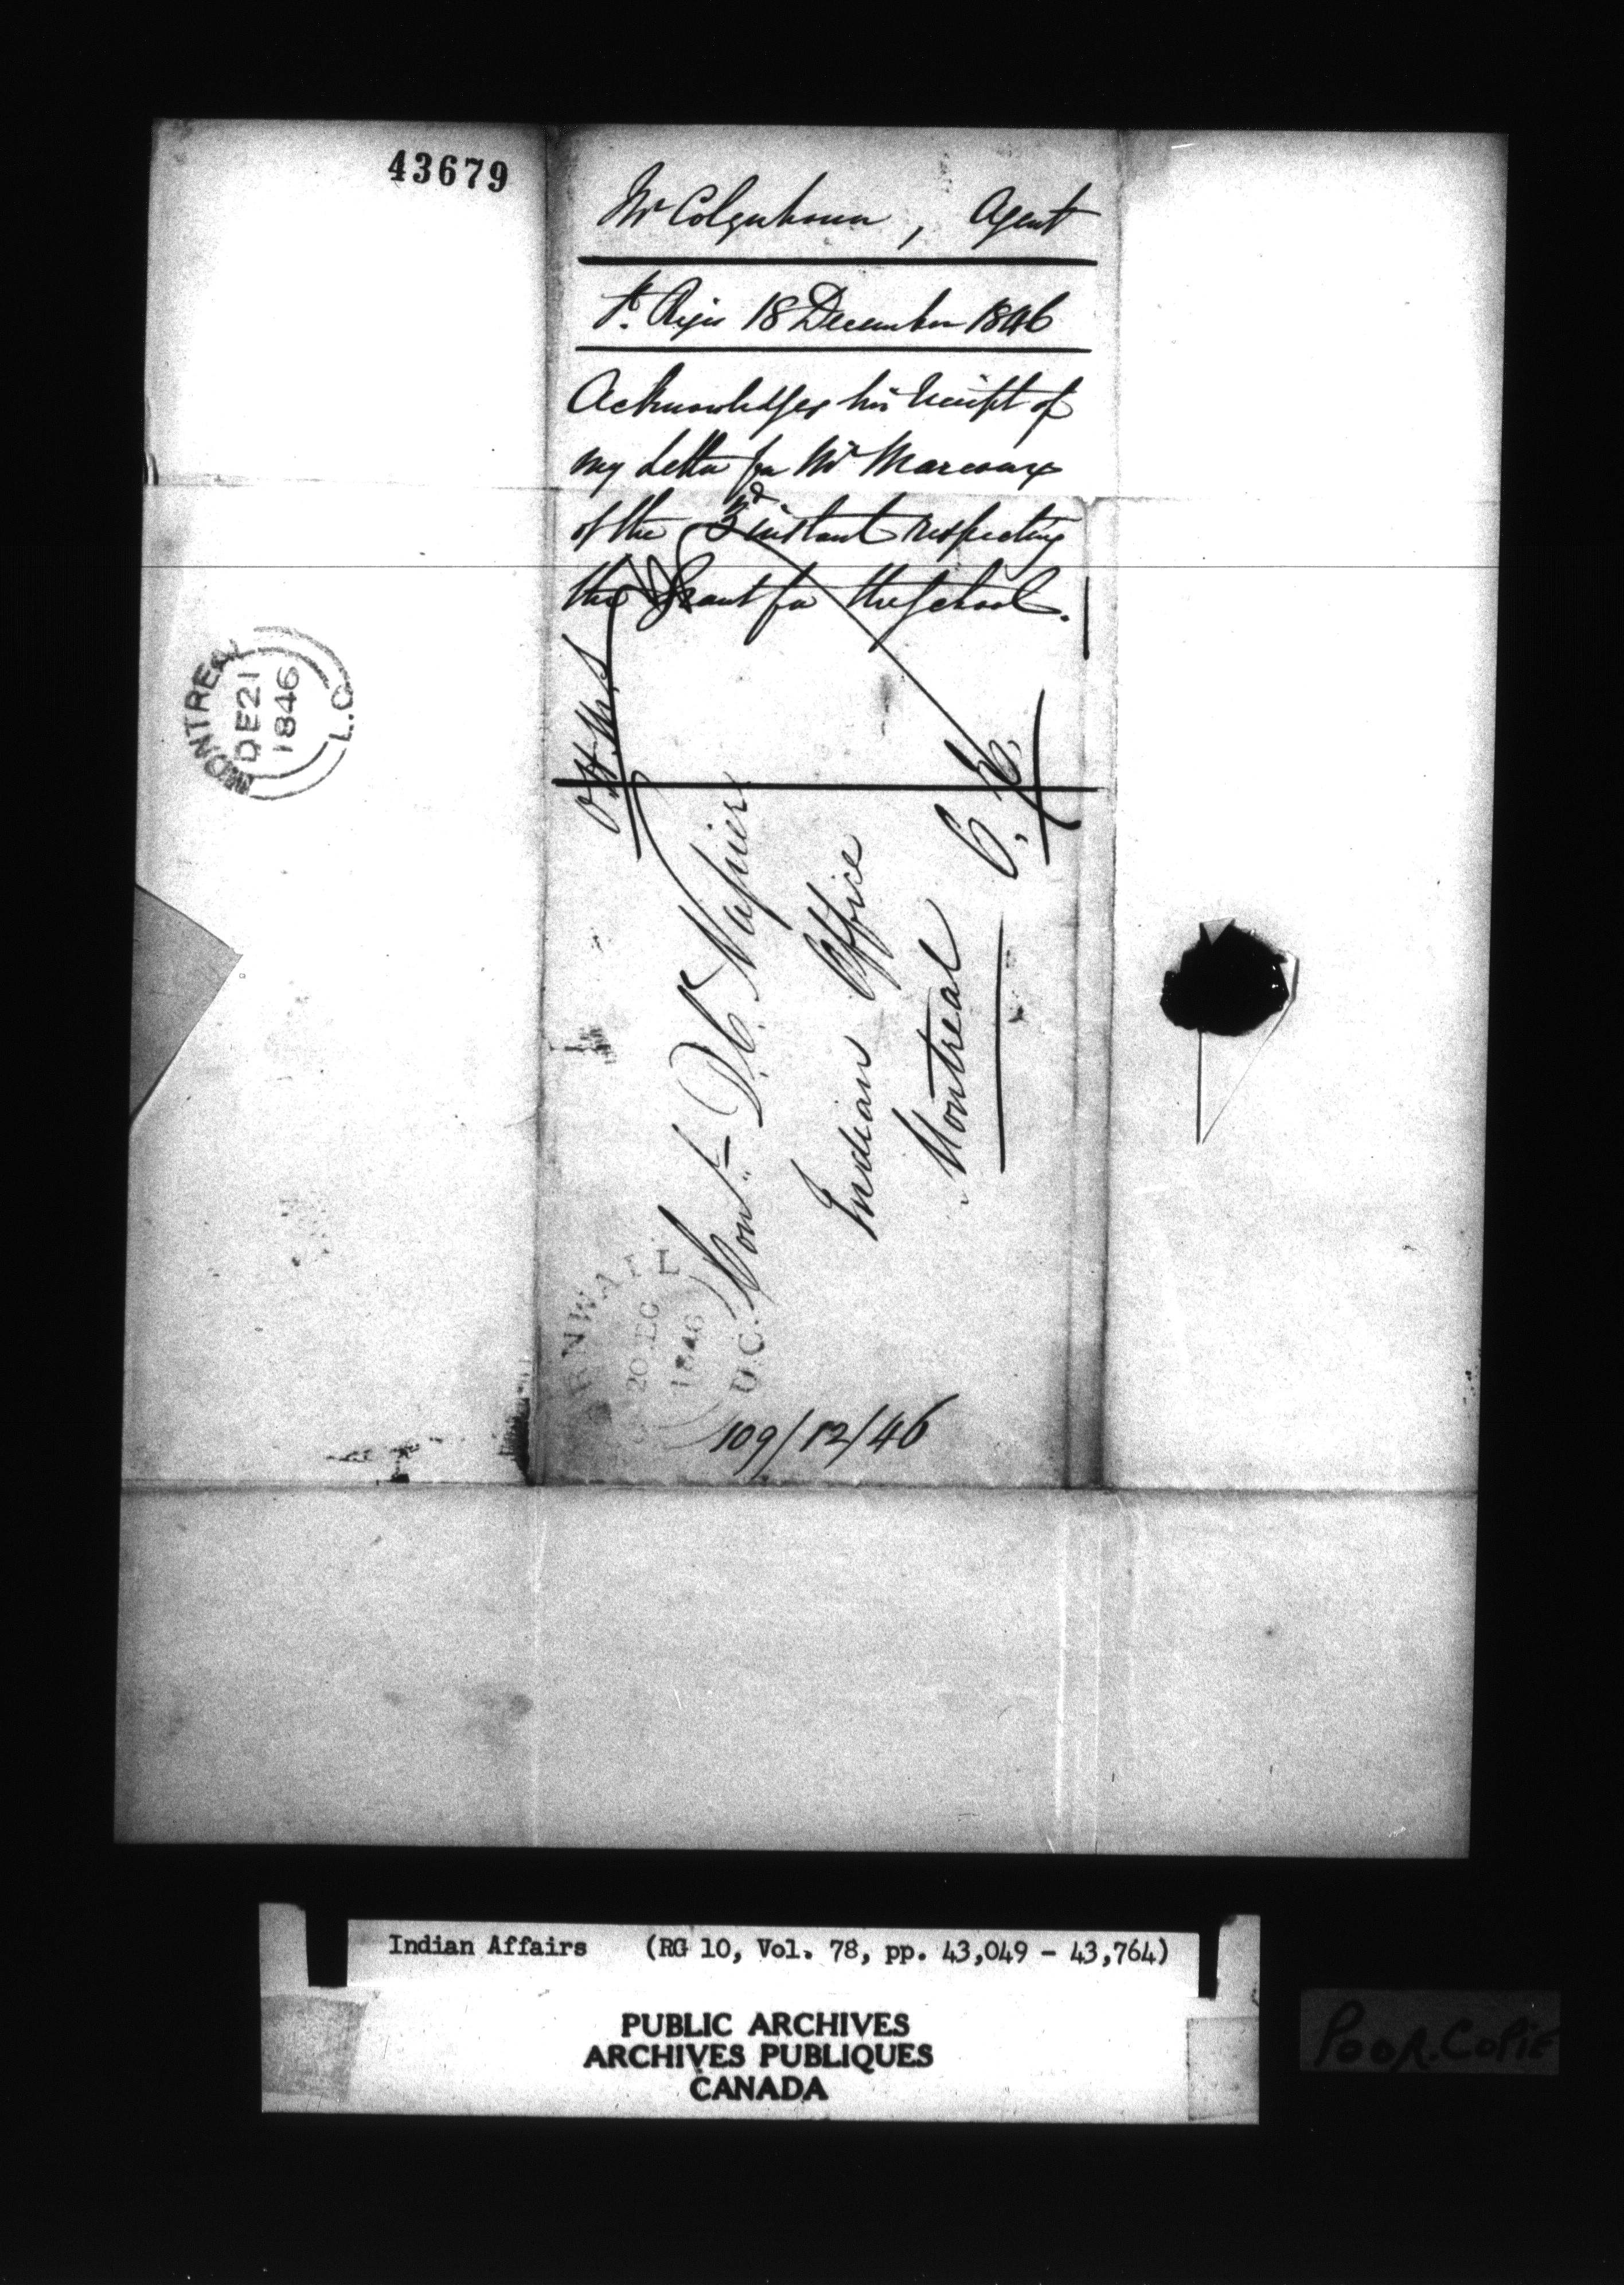 43679
Mr Colquhoun, Agent
St. Regis 18 December 1846
Acknowledges his receipt of
my Letter for Mr Marcoux
of the 3d instant respecting
the Grant for the School.
O.H.M.S
Comt. D.C. Napier
Indian Office
Montreal
C.E.
MONTREAL
DE 21
1846
L.C
CORNWALL
20 DEC
1846
U.C.
109/12/46
Indian Affairs (RG 10, Vol. 78, pp. 43,049 - 43,764)
PUBLIC ARCHIVES
ARCHIVES PUBLIQUES
CANADA
POOR. COPIE